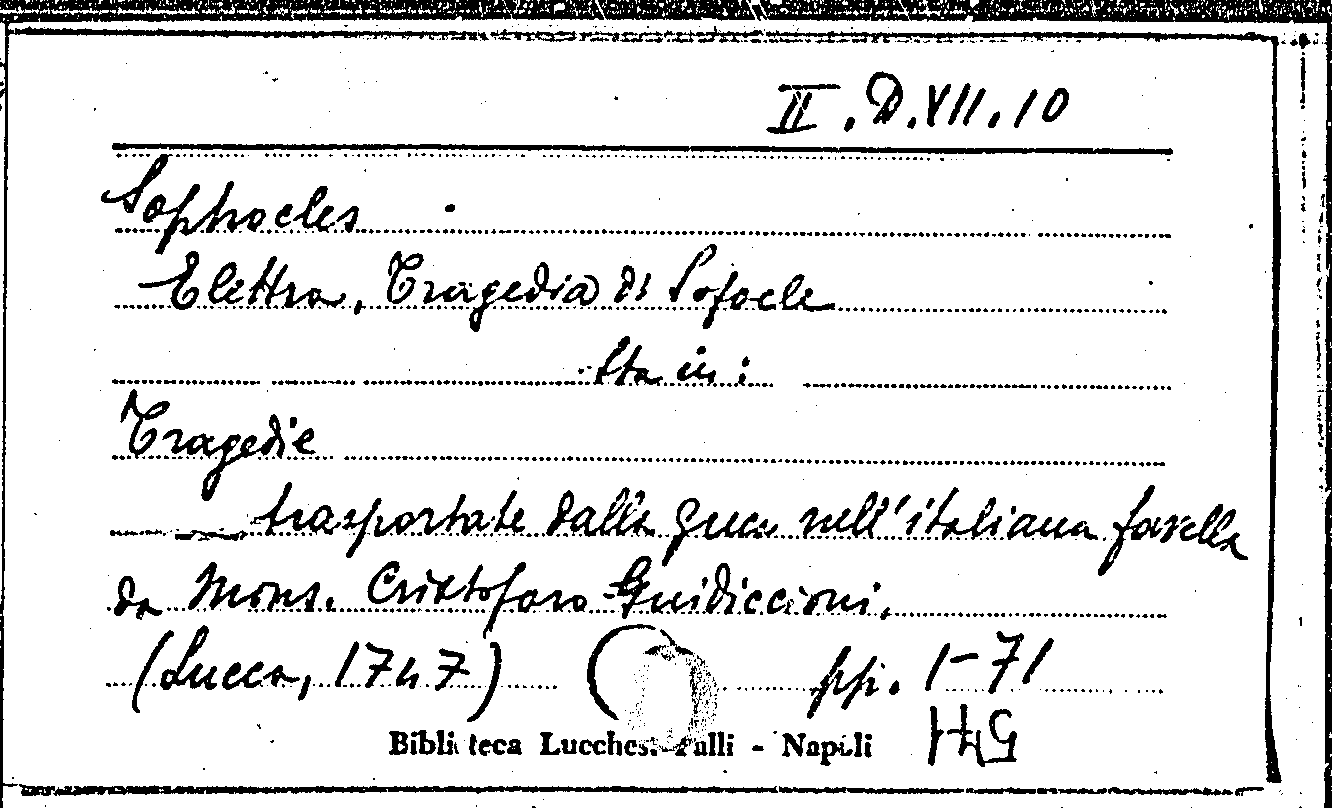 II.D.VII.10
Sophocles
Elettra, Tragedia di Sofocle
Sta in:
Tragedie
trasportate dalla greca nell'italiana favella
da Mons. Cristoforo Guidiccioni.
(Lucca, 1747) ( pp. 1-71
Biblioteca Lucchesi Palli - Napoli